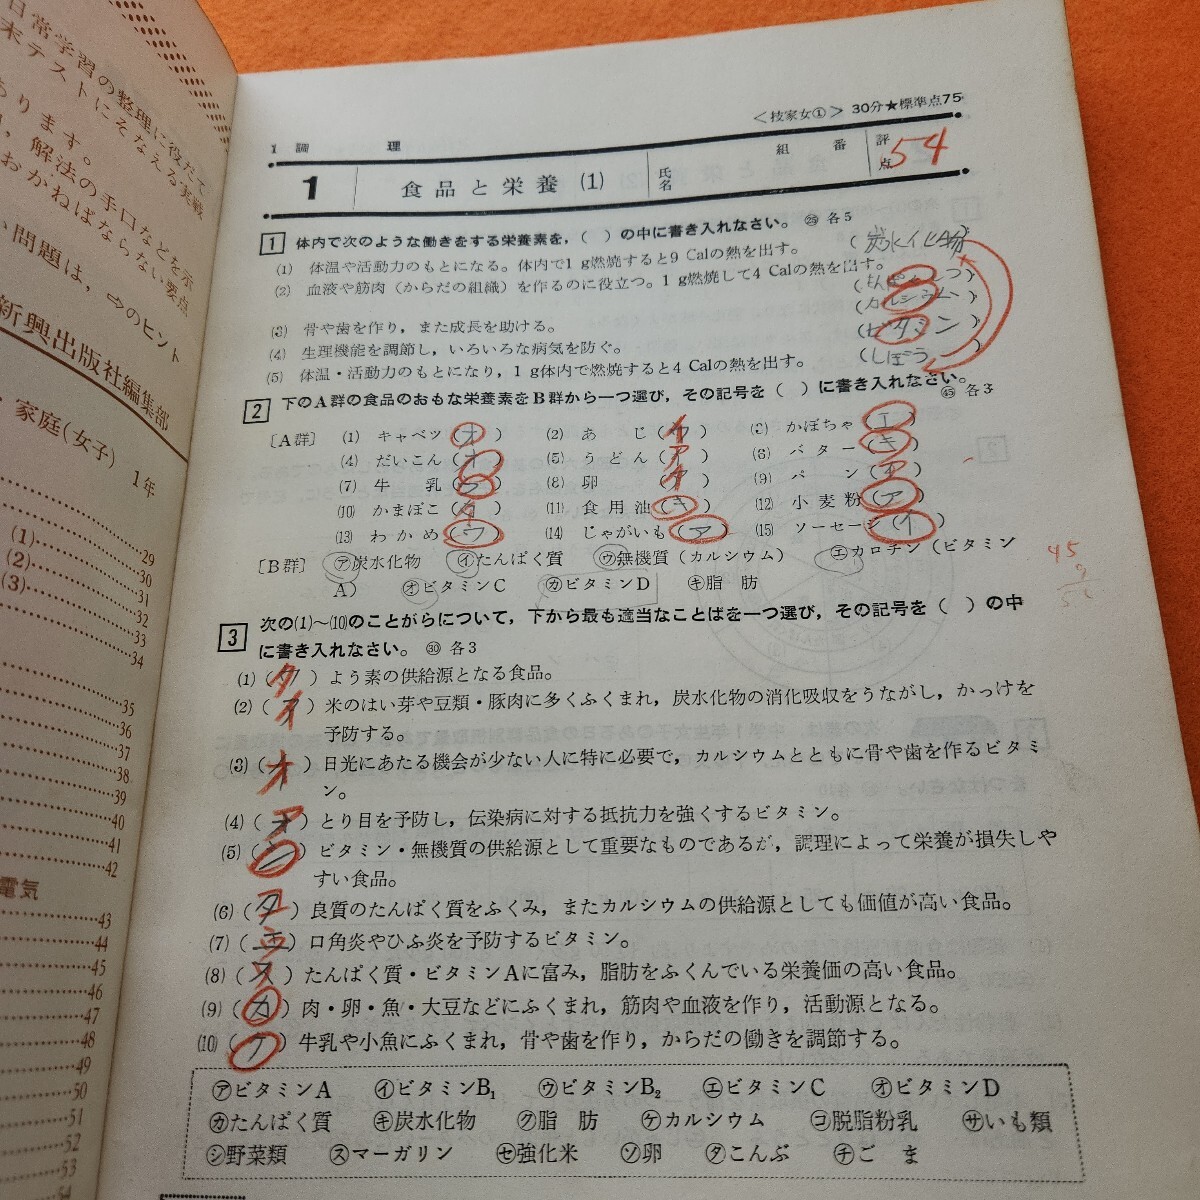 日常学習の整理に役だて
末テストにそなえる実戦
あります。
解法の手口などを示
おかねばならない要点
問題は，⇨のヒント
新興出版社編集部
家庭(女子) 1年
(1)……29
(2)……30
(3)……31
……32
……33
……34
……35
……36
……37
……38
……39
……40
……41
……42
電気
……43
……44
……45
……46
……47
……48
……49
……50
……51
……52
……53
……54
＜技家女①＞ 30分★標準点75
1 調理
1 食品と栄養 (1) 氏名 組 番 評点 54
1 体内で次のような働きをする栄養素を，( )の中に書き入れなさい。 ㉕ 各5
(1) 体温や活動力のもとになる。体内で1g燃焼すると9 Calの熱を出す。 (炭水化物)
(2) 血液や筋肉（からだの組織）を作るのに役立つ。1g燃焼して4 Calの熱を出す。
(カルシウム)
(3) 骨や歯を作り，また成長を助ける。 (ビタミン)
(4) 生理機能を調節し，いろいろな病気を防ぐ。 (しぼう)
(5) 体温・活動力のもとになり，1g体内で燃焼すると4 Calの熱を出す。
2 下のA群の食品のおもな栄養素をB群から一つ選び，その記号を( )に書き入れなさい。 ㊺ 各3
〔A群〕 (1) キャベツ(オ) (2) あじ( ) (3) かぼちゃ(エ)
(4) だいこん(オ) (5) うどん(ア) (6) バター(キ)
(7) 牛乳(ウ) (8) 卵(イ) (9) パン(ア)
(10) かまぼこ(イ) (11) 食用油(キ) (12) 小麦粉(ア)
(13) わかめ(ウ) (14) じゃがいも(ア) (15) ソーセージ(イ)
〔B群〕 ㋐炭水化物 ㋑たんぱく質 ㋒無機質（カルシウム） ㋓カロチン（ビタミン
A） ㋔ビタミンC ㋕ビタミンD ㋖脂肪
45
9
54
3 次の(1)～(10)のことがらについて，下から最も適当なことばを一つ選び，その記号を( )の中
に書き入れなさい。 ㉚ 各3
(1) (タ) よう素の供給源となる食品。
(2) (イ) 米のはい芽や豆類・豚肉に多くふくまれ，炭水化物の消化吸収をうながし，かっけを
予防する。
(3) (オ) 日光にあたる機会が少ない人に特に必要で，カルシウムとともに骨や歯を作るビタミ
ン。
(4) (ア) とり目を予防し，伝染病に対する抵抗力を強くするビタミン。
(5) (シ) ビタミン・無機質の供給源として重要なものであるが，調理によって栄養が損失しや
すい食品。
(6) (コ) 良質のたんぱく質をふくみ，またカルシウムの供給源としても価値が高い食品。
(7) (ウ) 口角炎やひふ炎を予防するビタミン。
(8) (ス) たんぱく質・ビタミンAに富み，脂肪をふくんでいる栄養価の高い食品。
(9) (カ) 肉・卵・魚・大豆などにふくまれ，筋肉や血液を作り，活動源となる。
(10) (ケ) 牛乳や小魚にふくまれ，骨や歯を作り，からだの働きを調節する。
㋐ビタミンA ㋑ビタミンB₁ ㋒ビタミンB₂ ㋓ビタミンC ㋔ビタミンD
㋕たんぱく質 ㋖炭水化物 ㋗脂肪 ㋘カルシウム ㋙脱脂粉乳 ㋚いも類
㋛野菜類 ㋜マーガリン ㋝強化米 ㋞卵 ㋟こんぶ ㋠ごま